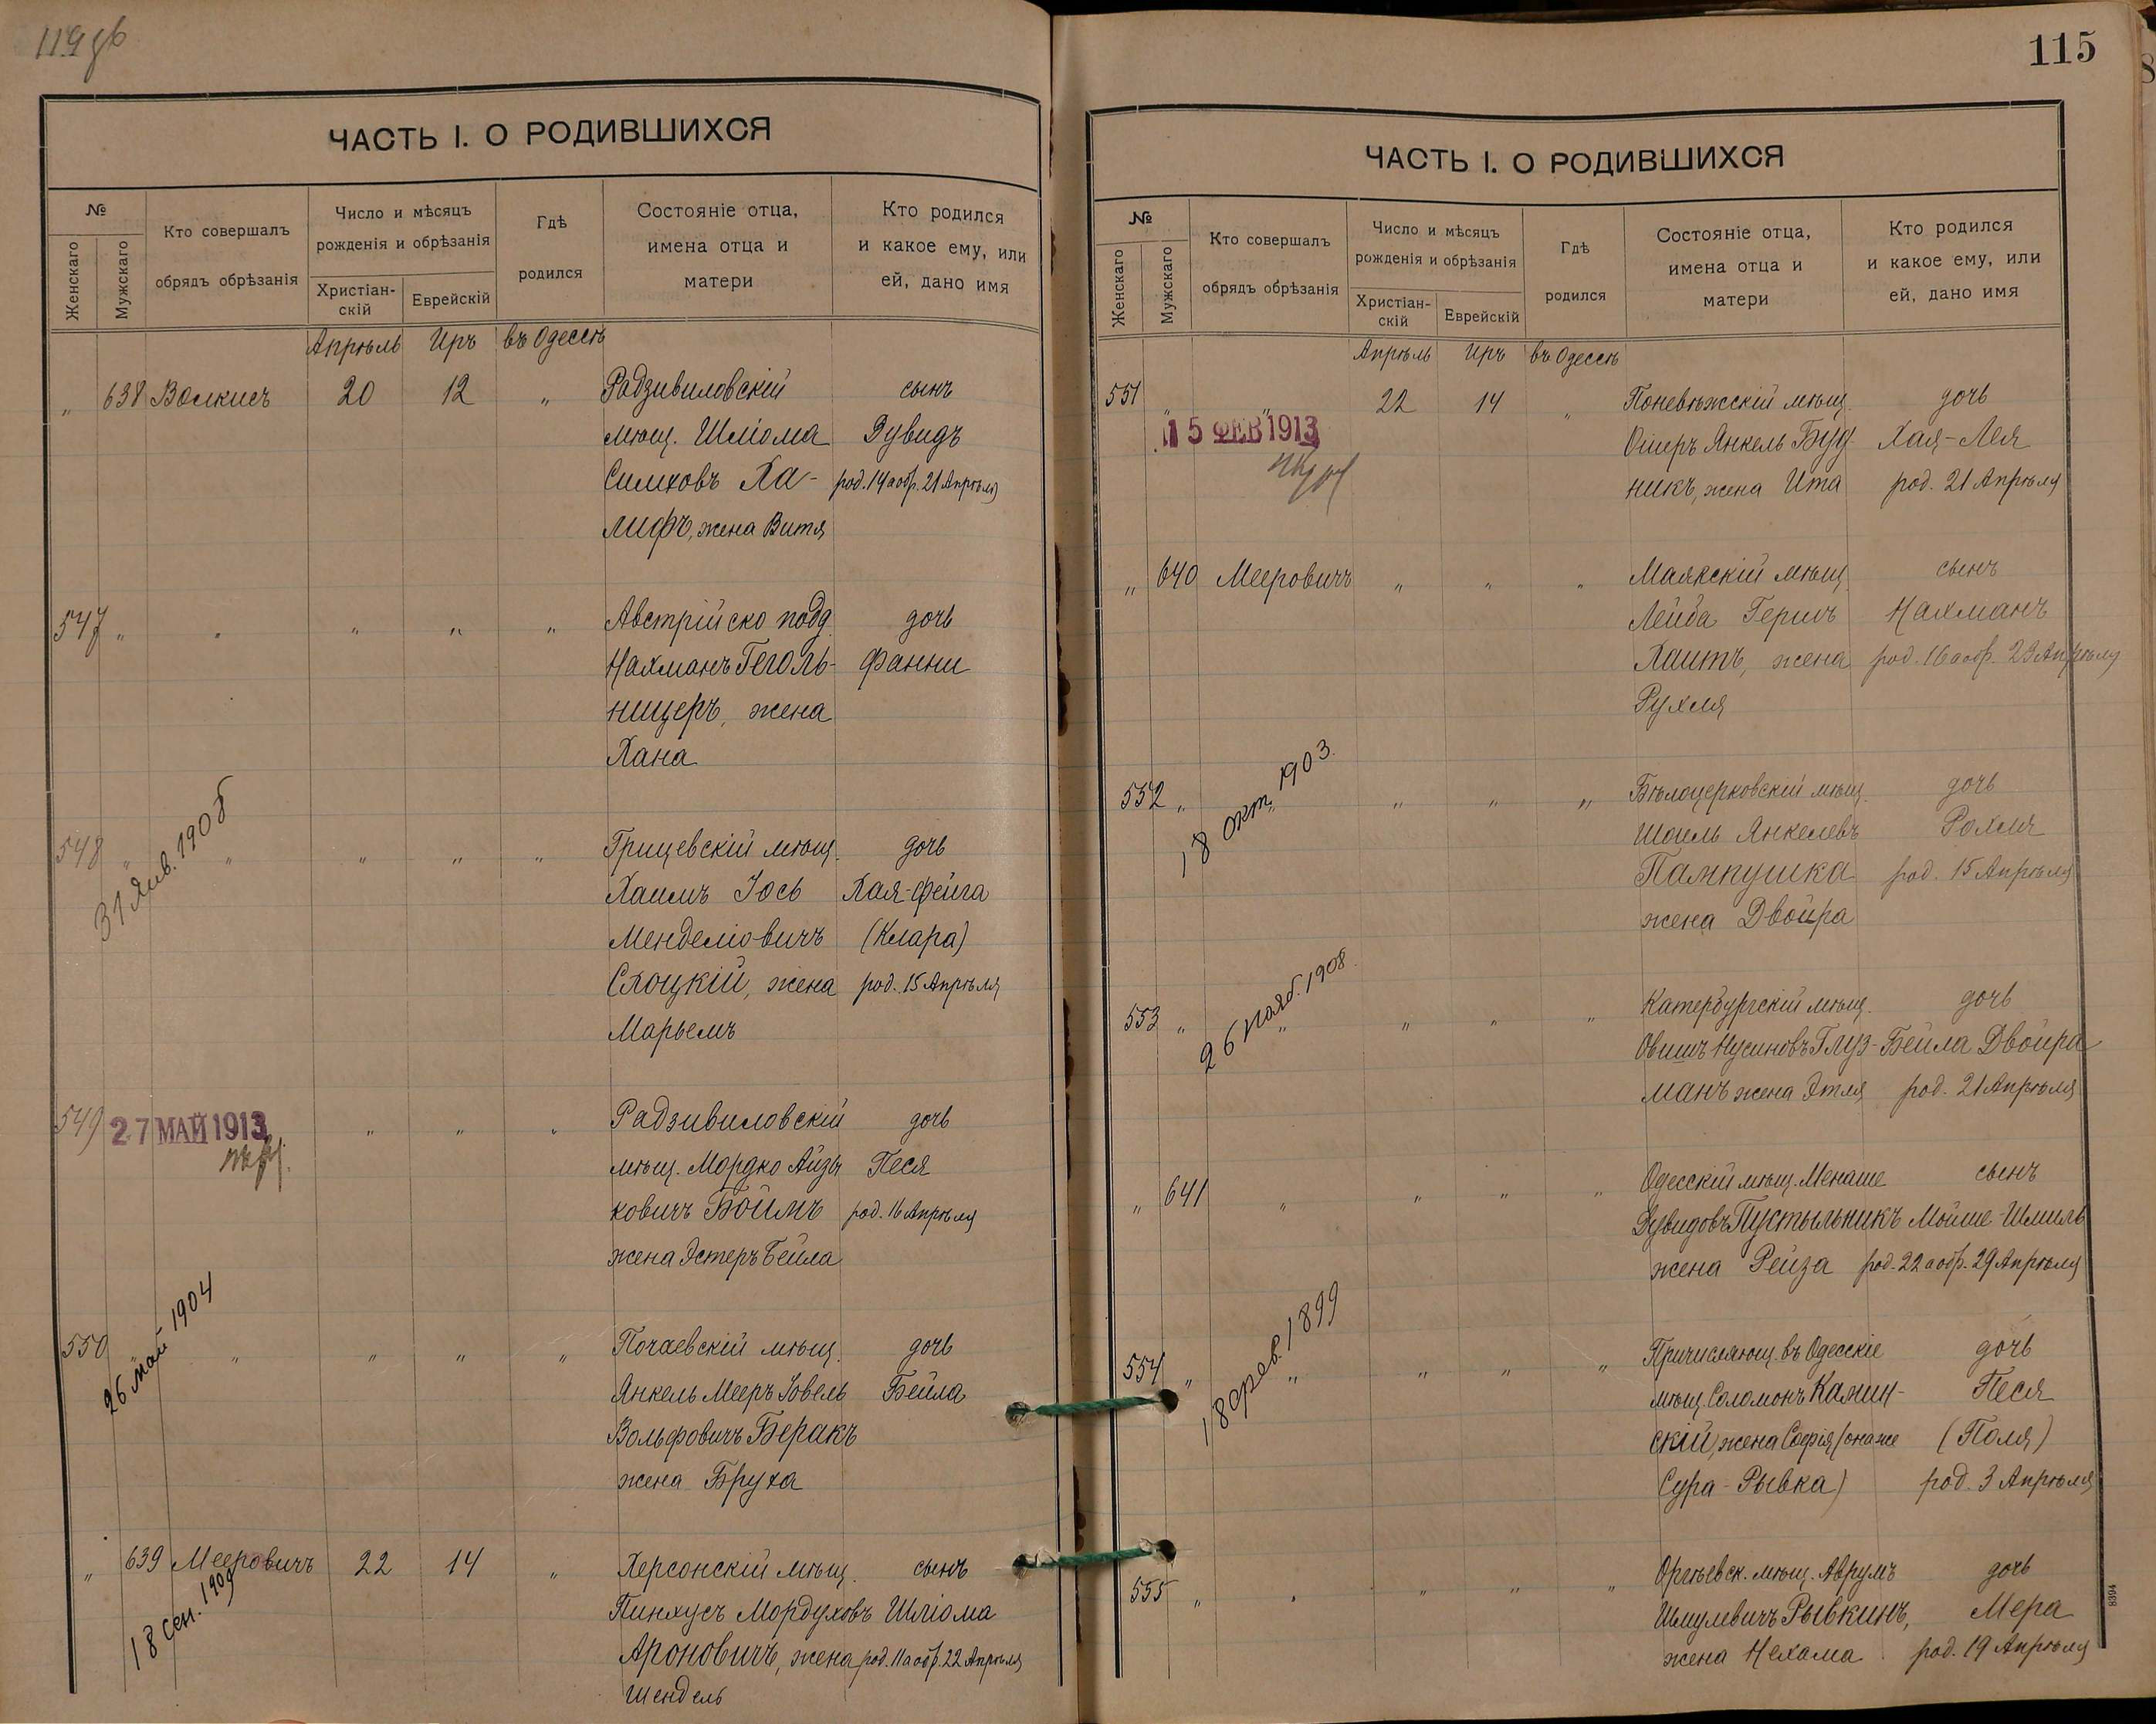 119 об
ЧАСТЬ I. О РОДИВШИХСЯ
№
Женскаго
Мужскаго
Кто совершалъ
обрядъ обрѣзанія
Число и мѣсяцъ
рожденія и обрѣзанія
Христіан-
скій
Еврейскій
Гдѣ
родился
Состояніе отца,
имена отца и
матери
Кто родился
и какое ему, или
ей, дано имя
Апрѣль Иръ въ Одессѣ
" 638 Волкисъ 20 12 " Радзивиловскій сынъ
мѣщ. Шліома Дувидъ
Симховъ Ха- род. 14 а обр. 21 Апрѣля
лифъ, жена Витя
547 " " " " " Австрійско подд. дочь
Нахманъ Геголь- Фанни
ницеръ, жена
Хана
548 " " " " " Грицевскій мѣщ. дочь
31 Янв. 1908
Хаимъ Іось Хая-Фейга
Менделіовичъ (Клара)
Слоцкій, жена род. 15 Апрѣля
Марьемъ
549 " " " Радзивиловскій дочь
27 МАЙ 1913
мѣщ. Мордко Айзы Песя
ковичъ Боймъ род. 16 Апрѣля
жена Эстеръ Бейла
550 " " " " " Почаевскій мѣщ. дочь
26 май 1904
Янкель Мееръ Іовель Бейла
Вольфовичъ Беракъ
жена Бруха
" 639 Мееровичъ 22 14 " Херсонскій мѣщ. сынъ
18 сен. 1909
Пинхусъ Мордуховъ Шліома
Ароновичъ, жена род. 11 а обр. 22 Апрѣля
Шендель
115
ЧАСТЬ I. О РОДИВШИХСЯ
№
Женскаго
Мужскаго
Кто совершалъ
обрядъ обрѣзанія
Число и мѣсяцъ
рожденія и обрѣзанія
Христіан-
скій
Еврейскій
Гдѣ
родился
Состояніе отца,
имена отца и
матери
Кто родился
и какое ему, или
ей, дано имя
Апрѣль Иръ въ Одессѣ
551 " " 22 14 " Поневѣжскій мѣщ. дочь
15 ФЕВ 1913
Ошеръ Янкель Буд- Хая-Лея
никъ, жена Ита род. 21 Апрѣля
" 640 Мееровичъ " " " Маякскій мѣщ. сынъ
Лейба Гершъ Нахманъ
Хаитъ, жена род. 16 а обр. 23 Апрѣля
Рухля
552 " " " " " Бѣлоцерковскій мѣщ. дочь
18 окт. 1903.
Шоель Янкелевъ Рохля
Пампушка род. 15 Апрѣля
жена Двойра
553 " " " " " Катербургскій мѣщ. дочь
26 нояб. 1908.
Овшиъ Нусиновъ Глуз- Бейла Двойра
манъ жена Этля род. 21 Апрѣля
" 641 " " " " Одесскій мѣщ. Менаше сынъ
Дувидовъ Пустыльникъ Мойше-Шмиль
жена Рейза род. 22 а обр. 29 Апрѣля
554 " " " " " Причисляющ. въ Одесскіе дочь
18 фев. 1899
мѣщ. Соломонъ Камин- Песя
скій, жена Софія (она же (Поля)
Сура-Рывка) род. 3 Апрѣля
555 " " " " " Оргѣевск. мѣщ. Аврумъ дочь
Шмулевичъ Рывкинъ, Мера
жена Нехама род. 19 Апрѣля
8394